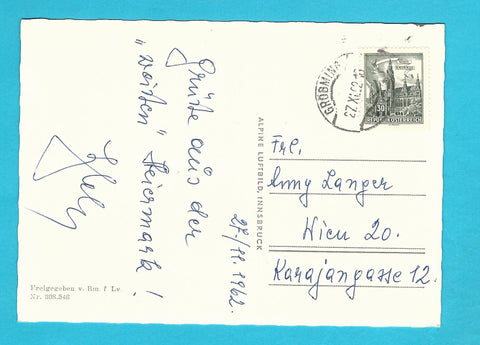 Grüße aus der
„weißen" Steiermark!
27/11. 1962.
Freigegeben v. Bm. f. Lv.
Nr. 308.546
ALPINE LUFTBILD, INNSBRUCK
GRÖBMING
27.XI.62
30
REPUBLIK ÖSTERREICH
Frl.
Anny Langer
Wien 20.
Karajangasse 12.